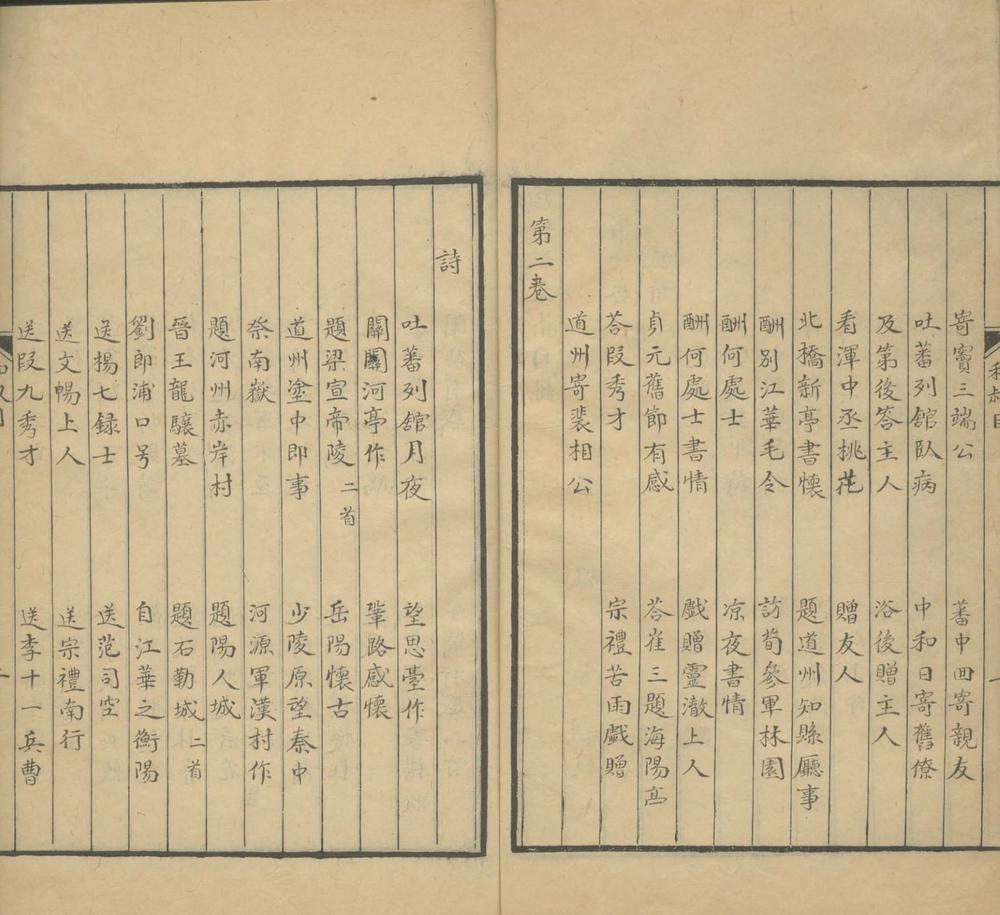 寄竇三端公　蕃中囬寄親友
吐蕃列舘臥病　中和日寄舊僚
及第後答主人　浴後贈主人
看渾中丞挑花　贈友人
北橋新亭書懷　題道州知縣廳事
酬别江華毛令　訪荀參軍林園
酬何處士　凉夜書情
酬何處士書情　戲贈靈澈上人
貞元舊節有感　荅崔三題海陽亭
荅段秀才　宗禮苦雨戲贈
道州寄裴相公
第二卷
詩
吐蕃列舘月夜　望思臺作
關河亭作　鞏路感懷
題梁宣帝陵二首　岳陽懷古
道州塗中即事　少陵原望秦中
祭南嶽　河源軍漢村作
題河州赤岸村　題陽人城
晉王龍驤墓　題石勒城二首
劉郎浦口号　自江華之衡陽
送楊七録士　送范司空
送文暢上人　送宗禮南行
送段九秀才　送李十一兵曹